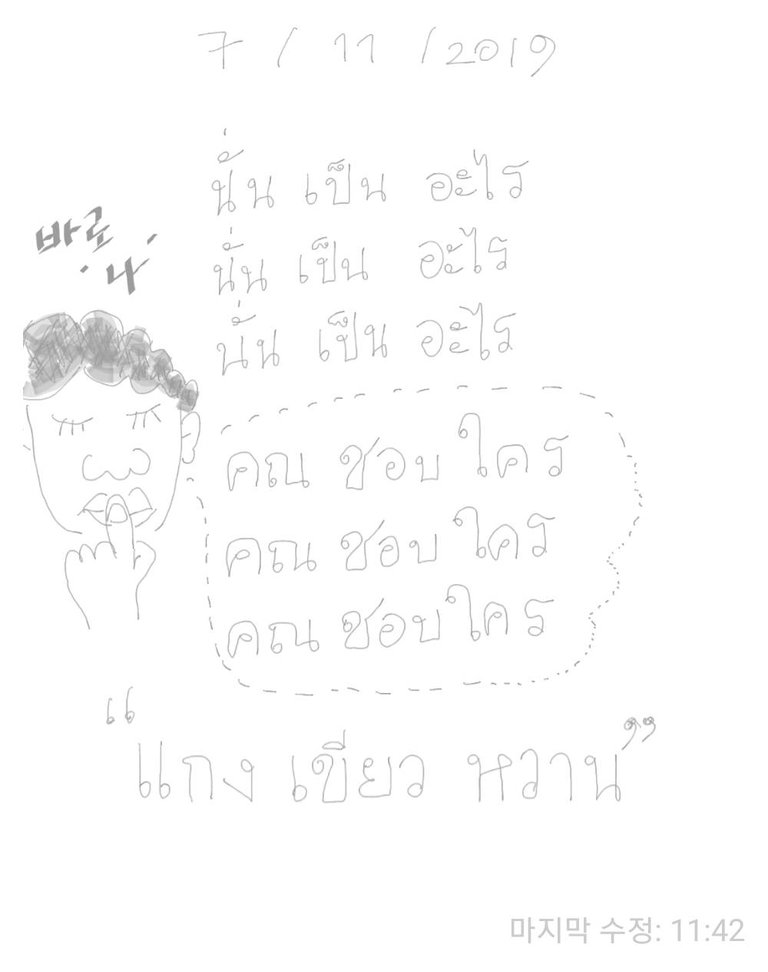 7 / 11 / 2019
นั่น เป็น อะไร
바로
나
นั่น เป็น อะไร
นั่น เป็น อะไร
คณ ชอบ ใคร
คณ ชอบ ใคร
คณ ชอบ ใคร
“แกง เขียว หวาน”
마지막 수정: 11:42